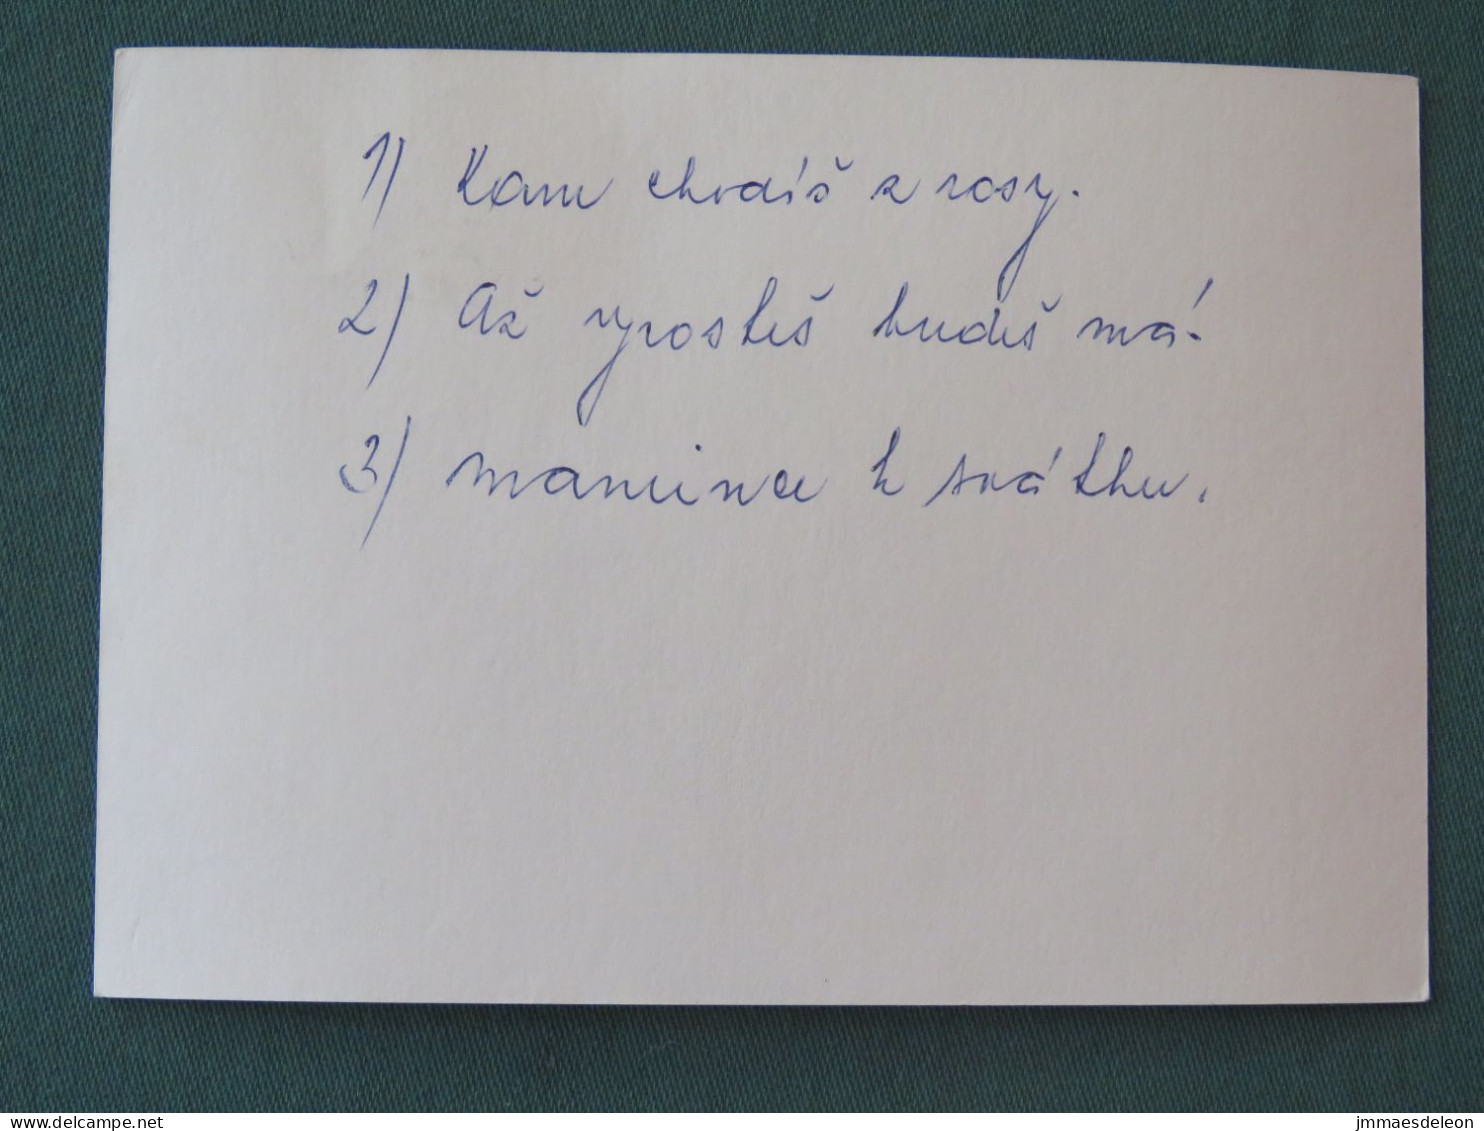 1) Kam chodíš z rosy.
2) Až vyrosteš budeš má.
3) mamince k svátku.
delcampe.net
jmmaesdeleon